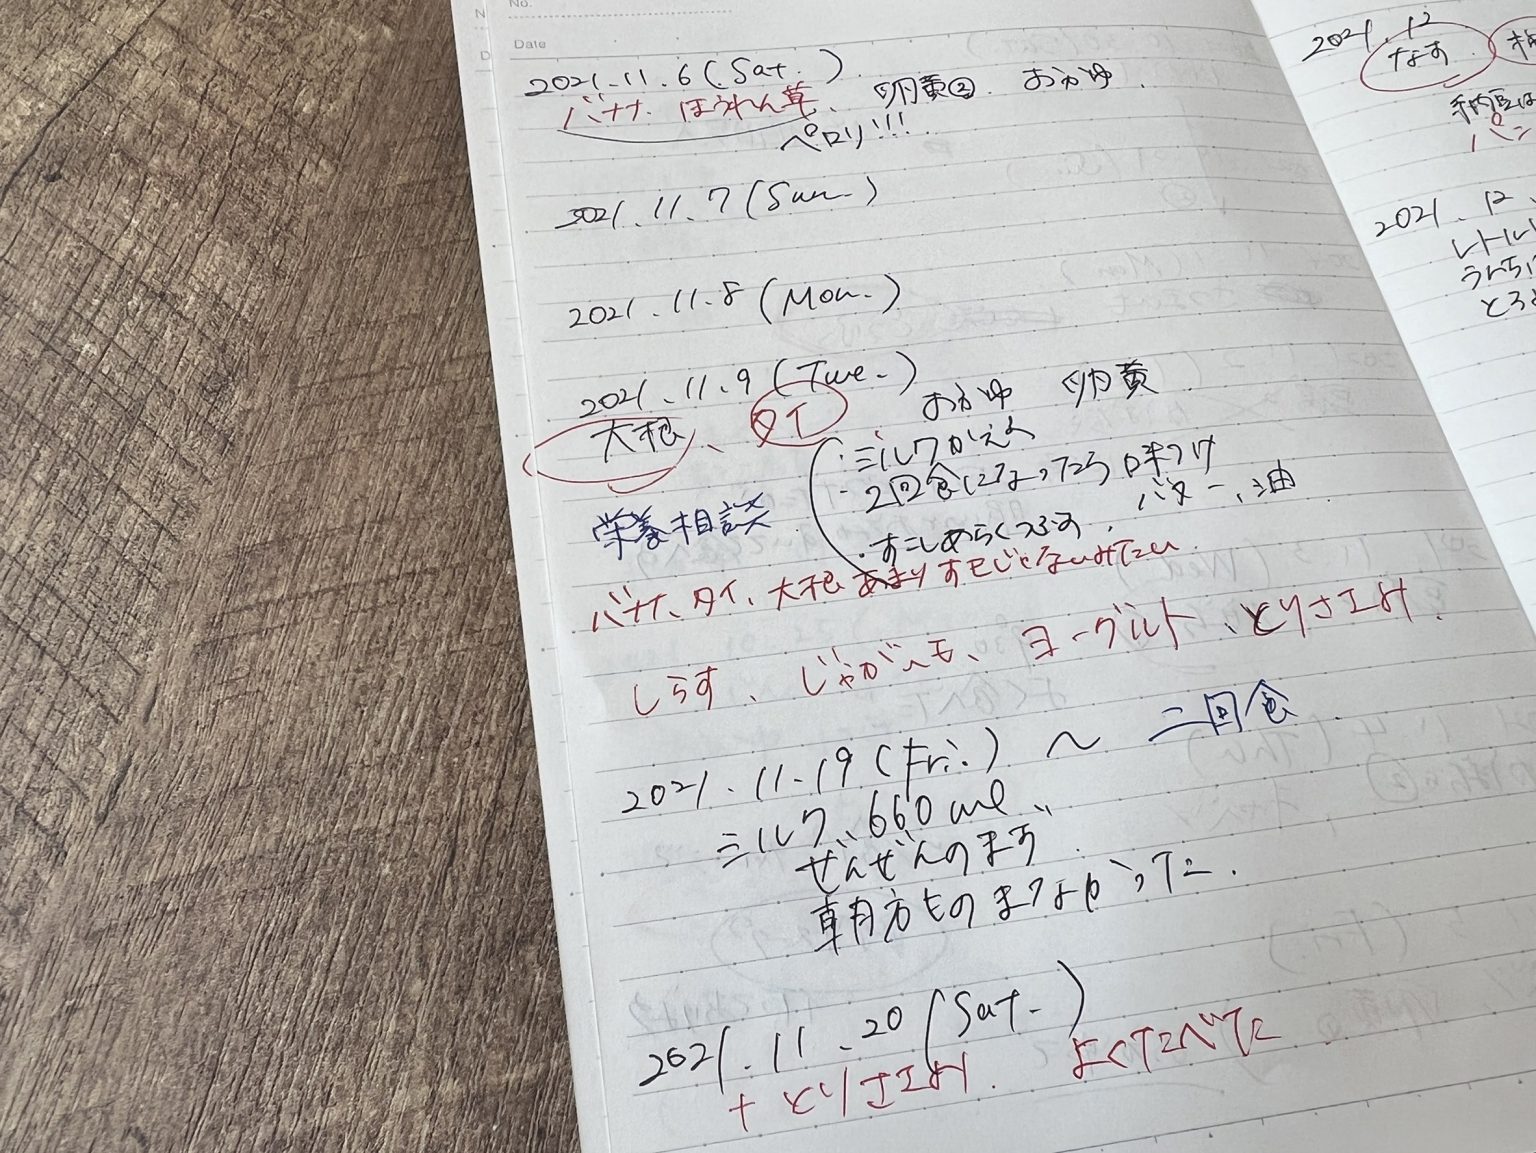 No.
Date
2021.11.6(Sat.)
バナナ ほうれん草、卵黄② おかゆ
ペロリ!!!
2021.11.7(Sun.)
2021.11.8(Mon.)
2021.11.9(Tue.)
大根、タイ おかゆ 卵黄
・ミルクかえる
・2回食になったら味つけ
バター、油
栄養相談
・すこしあらくつぶす.
バナナ、タイ、大根あまりすきじゃないみたい
しらす、じゃがいも、ヨーグルト、とりささみ.
2021.11.19(Fri.) 〜 二回食
ミルク、660ml
ぜんぜんのまず
朝方ものまなかった.
2021.11.20(Sat.)
+とりささみ. よくたべた
2021.12
なす
納豆は
パン
2021.12.
レトルト
うらら
とろ